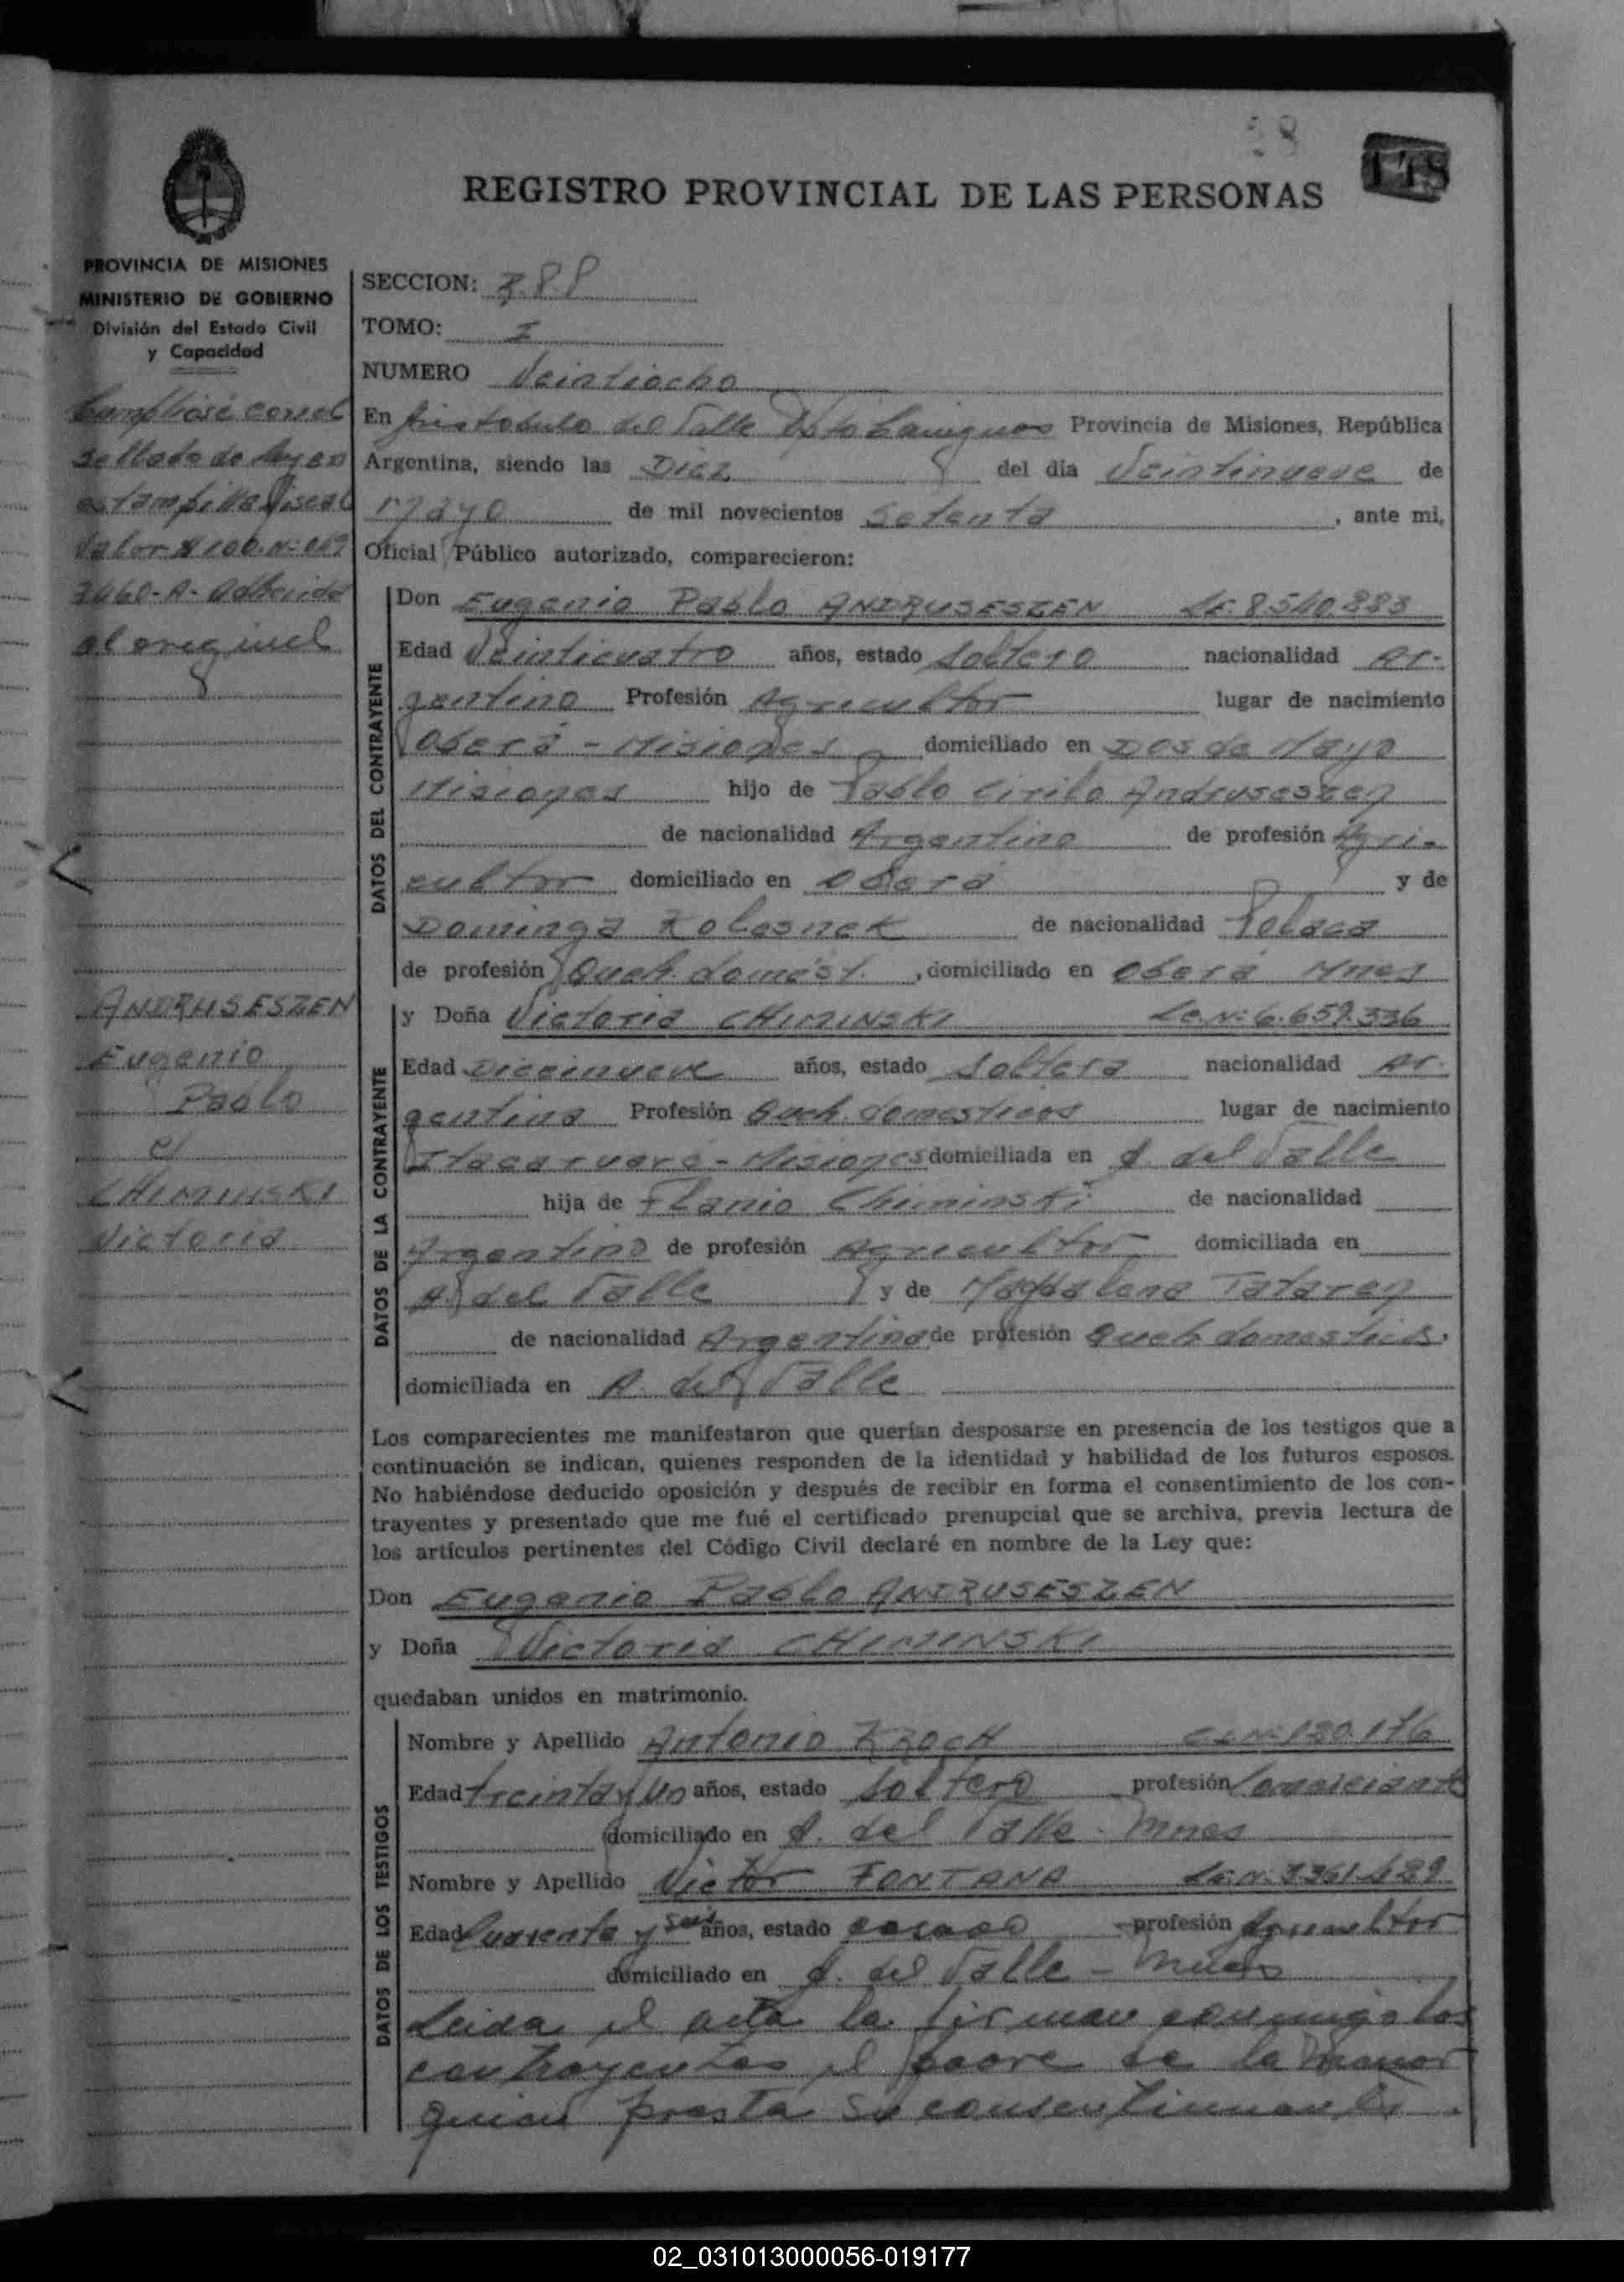 38
148
REGISTRO PROVINCIAL DE LAS PERSONAS
PROVINCIA DE MISIONES
MINISTERIO DE GOBIERNO
División del Estado Civil
y Capacidad
Cumpliose con el
sellado de ley en
estampilla fiscal
valor $ 100. Nº
3460-A- adherida
al original
ANDRUSESZEN
Eugenio
Pablo
c/
CHIMINSKI
Victoria
SECCION:
TOMO: I
NUMERO Veintiocho
En Aristobulo del Valle Dpto Cainguas Provincia de Misiones, República
Argentina, siendo las Diez del día Veintinueve de
Mayo de mil novecientos Setenta, ante mi,
Oficial Público autorizado, comparecieron:
DATOS DEL CONTRAYENTE
Don Eugenio Pablo ANDRUSESZEN LE. 8.540.883
Edad Veinticuatro años, estado Soltero nacionalidad Ar-
gentino Profesión Agricultor lugar de nacimiento
Oberá - Misiones domiciliado en Dos de Mayo
Misiones hijo de Pablo Cirilo Andruseszen
de nacionalidad Argentino de profesión Agri-
cultor domiciliado en Oberá y de
Dominga Kolesnek de nacionalidad Polaca
de profesión Queh. domést., domiciliado en Oberá Mnes
DATOS DE LA CONTRAYENTE
y Doña Victoria CHIMINSKI LC.Nº 6.659.336
Edad Diecinueve años, estado Soltera nacionalidad Ar-
gentina Profesión Queh. domesticos lugar de nacimiento
Itacaruaré - Misiones domiciliada en A. del Valle
hija de Flanio Chiminski de nacionalidad
Argentino de profesión Agricultor domiciliada en
A. del Valle y de Magdalena Tataren
de nacionalidad Argentina de profesión Queh domesticos,
domiciliada en A. del Valle
Los comparecientes me manifestaron que querían desposarse en presencia de los testigos que a
continuación se indican, quienes responden de la identidad y habilidad de los futuros esposos.
No habiéndose deducido oposición y después de recibir en forma el consentimiento de los con-
trayentes y presentado que me fué el certificado prenupcial que se archiva, previa lectura de
los artículos pertinentes del Código Civil declaré en nombre de la Ley que:
Don Eugenio Pablo ANDRUSESZEN
y Doña Victoria CHIMINSKI
quedaban unidos en matrimonio.
DATOS DE LOS TESTIGOS
Nombre y Apellido Antonio KROCH C.I.Nº 120.176
Edad treinta y un años, estado Soltero profesión Comerciante
domiciliado en A. del Valle - Mnes
Nombre y Apellido Victor FONTANA
Edad Cuarenta y seis años, estado casado profesión Agricultor
domiciliado en A. del Valle - Mnes
Leida el acta la firman conmigo los
contrayentes el padre de la menor
quien presta su consentimiento.
02_031013000056-019177